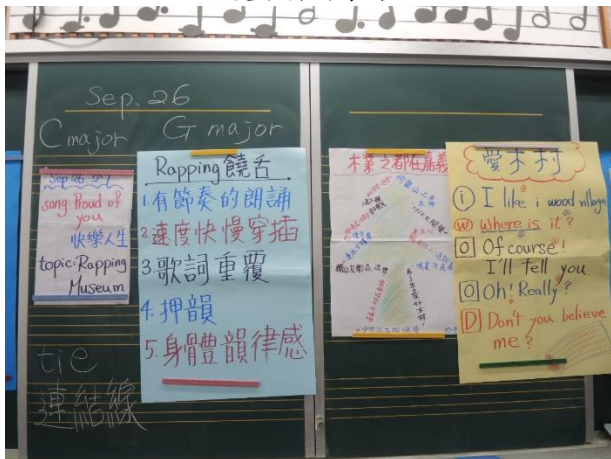 Sep. 26
C major G major
Sep 26 2017
song Proud of
you
快樂人生
topic: Rapping
Museum
Rapping饒舌
1.有節奏的朗誦
2.速度快慢穿插
3.歌詞重覆
4.押韻
5.身體韻律感
tie
連結線
木業之都在嘉義
愛木村
i I like i wood village
W Where is it?
O Of course!
I'll tell you.
O Oh! Really?
D Don't you believe
me?